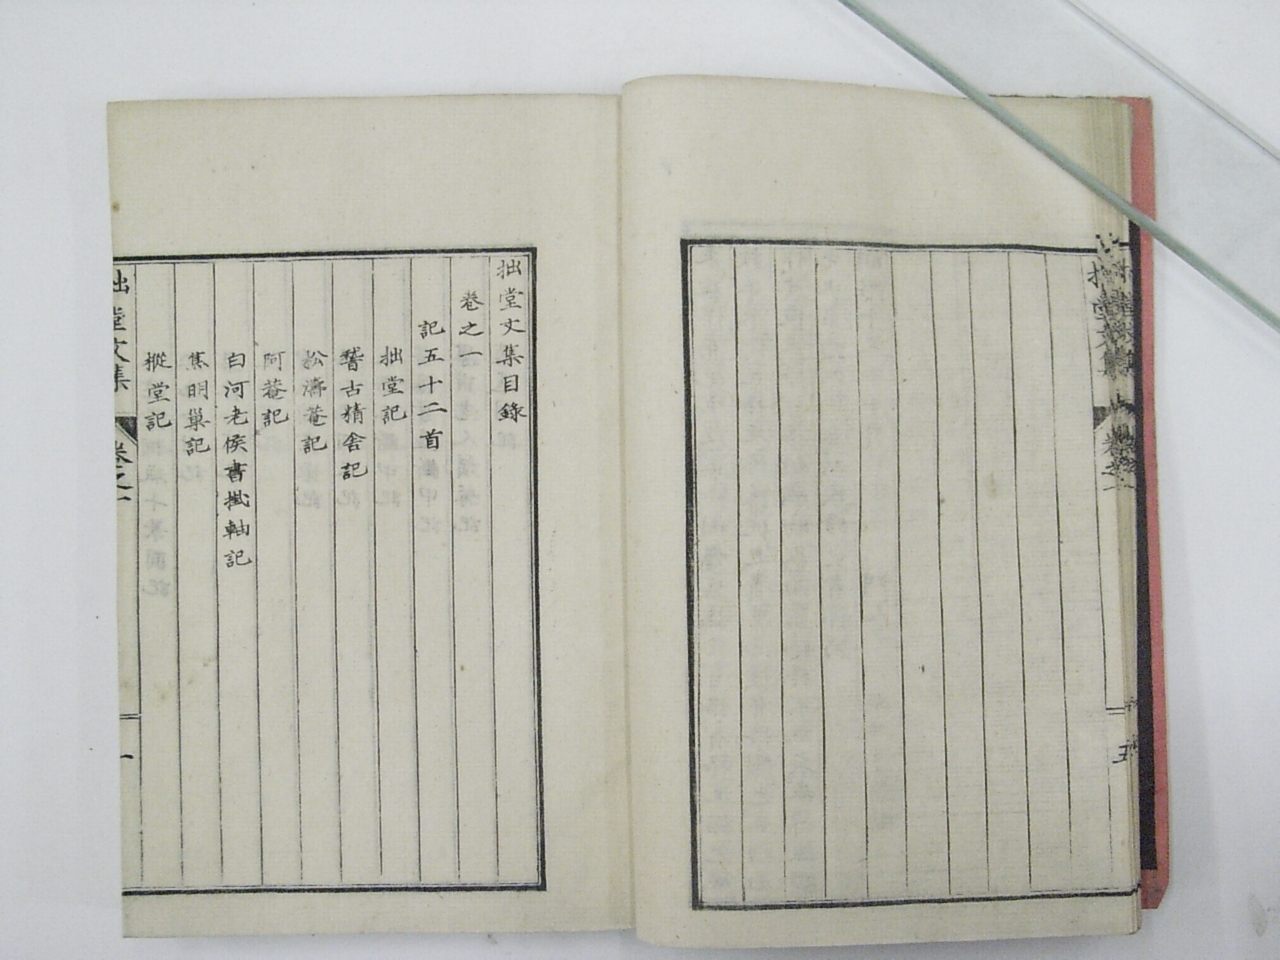 拙堂文集目錄
卷之一
記五十二首
拙堂記
稽古精舍記
松濤菴記
阿菴記
白河老侯書掛軸記
焦明巢記
樅堂記
拙堂文集
卷之一
一
拙堂文集
卷之一
五